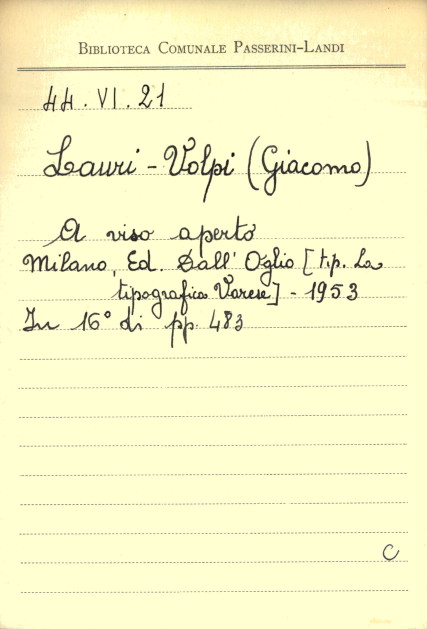 BIBLIOTECA COMUNALE PASSERINI-LANDI
44.VI.21
Lauri-Volpi (Giacomo)
A viso aperto
Milano, Ed. Dall'Oglio [tip. La
tipografica Varese] - 1953
In 16° di pp. 483
C